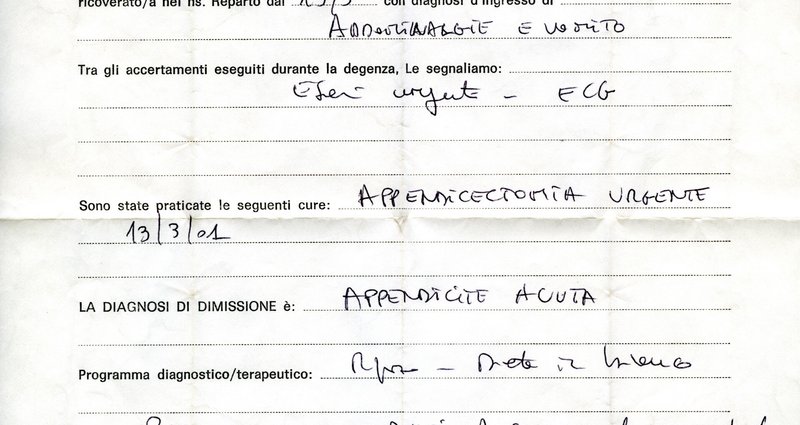 ricoverato/a nel ns. Reparto dal con diagnosi d'ingresso di
ADDOMINALGIE E VOMITO
Tra gli accertamenti eseguiti durante la degenza, Le segnaliamo:
Esami urgenti - ECG
Sono state praticate le seguenti cure: APPENDICECTOMIA URGENTE
13/3/01
LA DIAGNOSI DI DIMISSIONE è: APPENDICITE ACUTA
Programma diagnostico/terapeutico: Riposo - Dieta in bianco